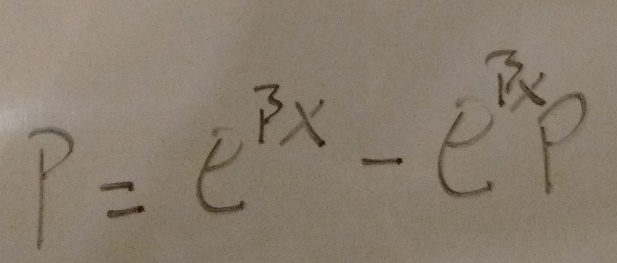 P = e^{βx} - e^{βx}P